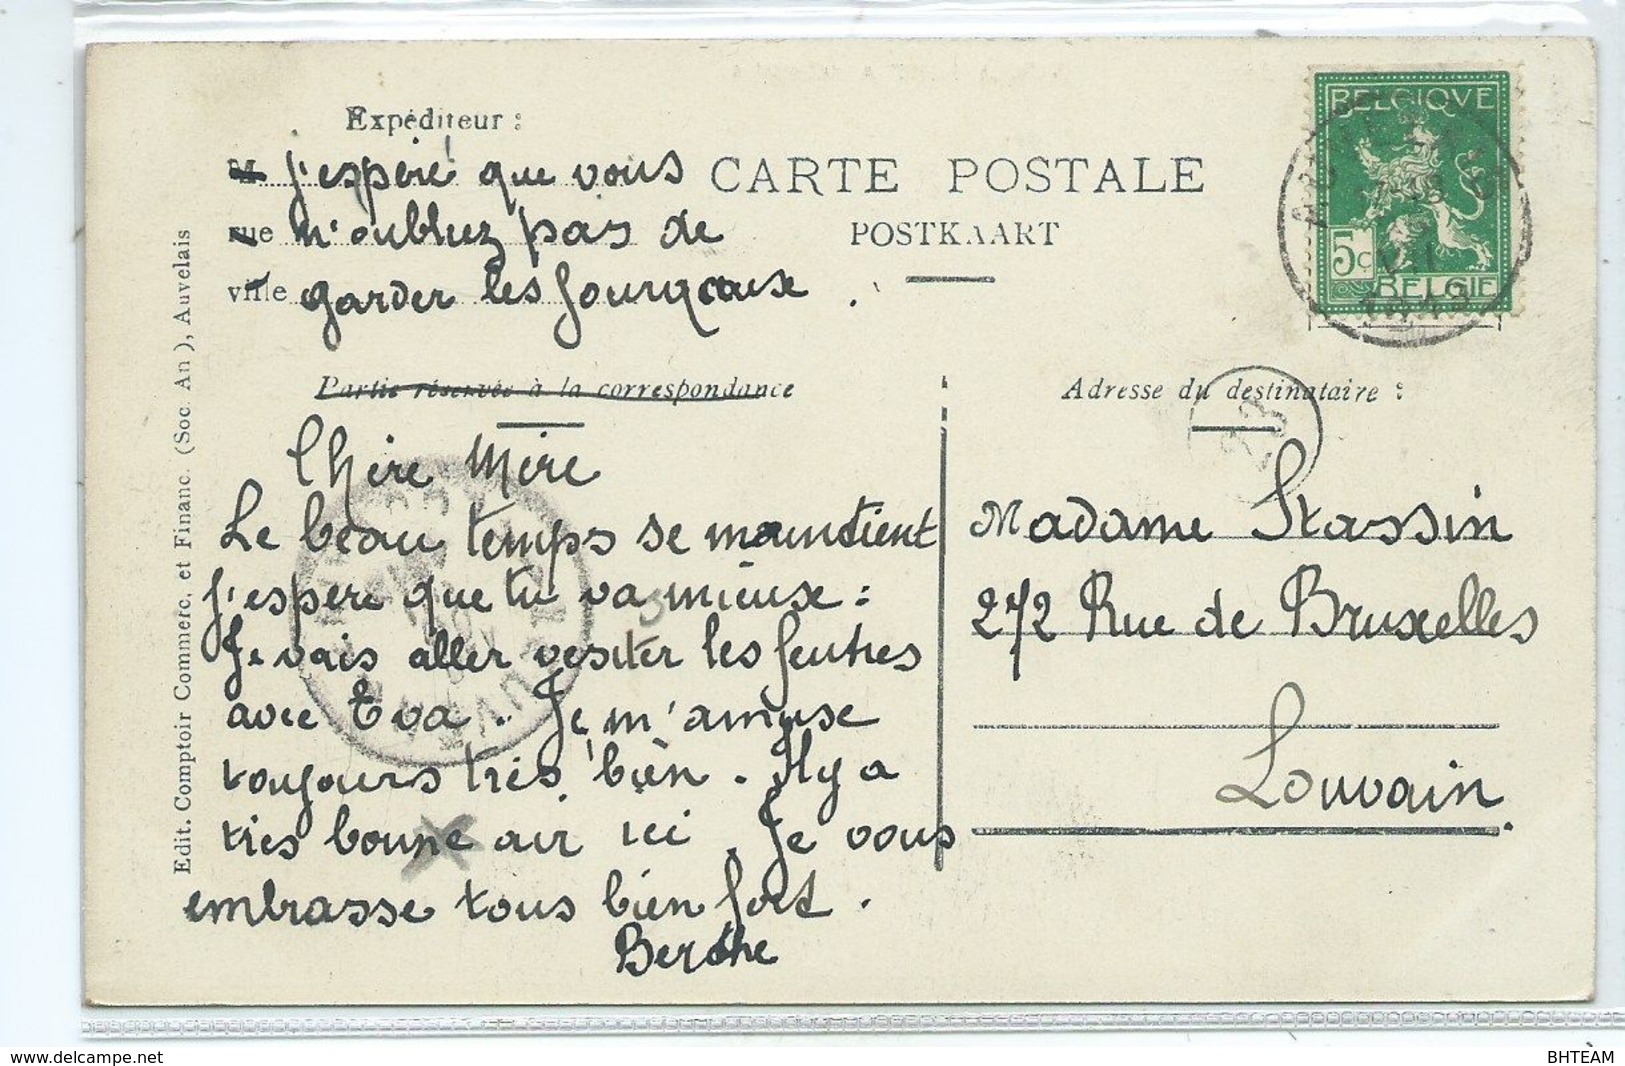 Expéditeur :
j'espère que vous
rue m'oubliez pas de
ville garder les journeause .
CARTE POSTALE
POSTKAART
BELGIQVE
5c
BELGIE
Partie réservée à la correspondance
Chère Mère
Le beau temps se maintient
j'espère que tu va mieuse :
Je vais aller vesiter les
avec Eva . Je m'amuse
toujours très bien . Il y a
très bonne air ici . Je vous
embrasse tous bien fort .
Berthe
Adresse du destinataire :
23
Madame Stassin
272 Rue de Bruxelles
Louvain.
Edit. Comptoir Commerc, et Financ. (Soc. An ), Auvelais
www.delcampe.net
BHTEAM